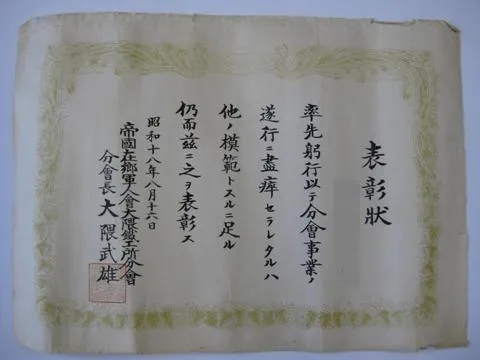 表彰状
率先躬行以テ分會事業ノ
遂行ニ盡瘁セラレタルハ
他ノ模範トスルニ足ル
仍而茲ニ之ヲ表彰ス
昭和十八年八月十六日
帝國在郷軍人會大隈鐵工所分會
分會長 大隈武雄